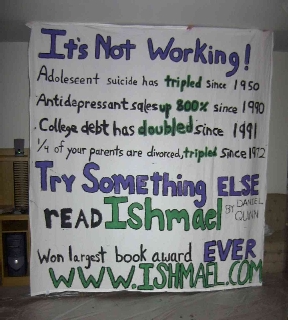 It's Not Working!
Adolescent suicide has tripled since 1950
Antidepressant sales up 800% since 1990
College debt has doubled since 1991
1/4 of your parents are divorced, tripled since 1972
Try Something ELSE
READ Ishmael BY DANIEL QUINN
Won largest book award EVER
WWW.ISHMAEL.COM